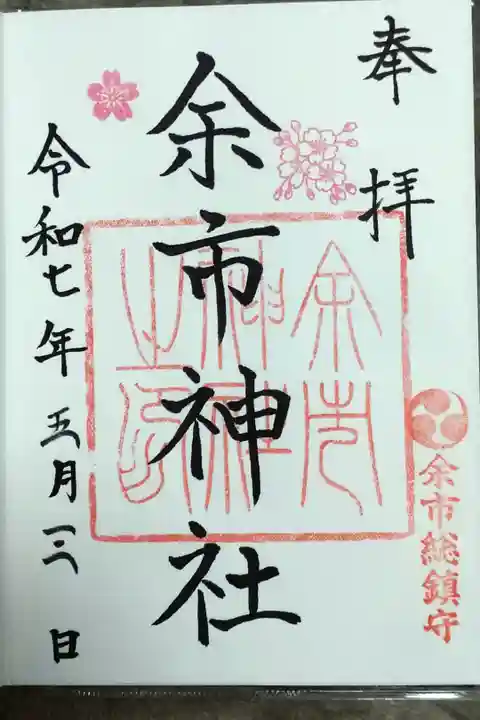 奉拝
余市神社
令和七年五月三日
余市
神社
之印
余市総鎮守